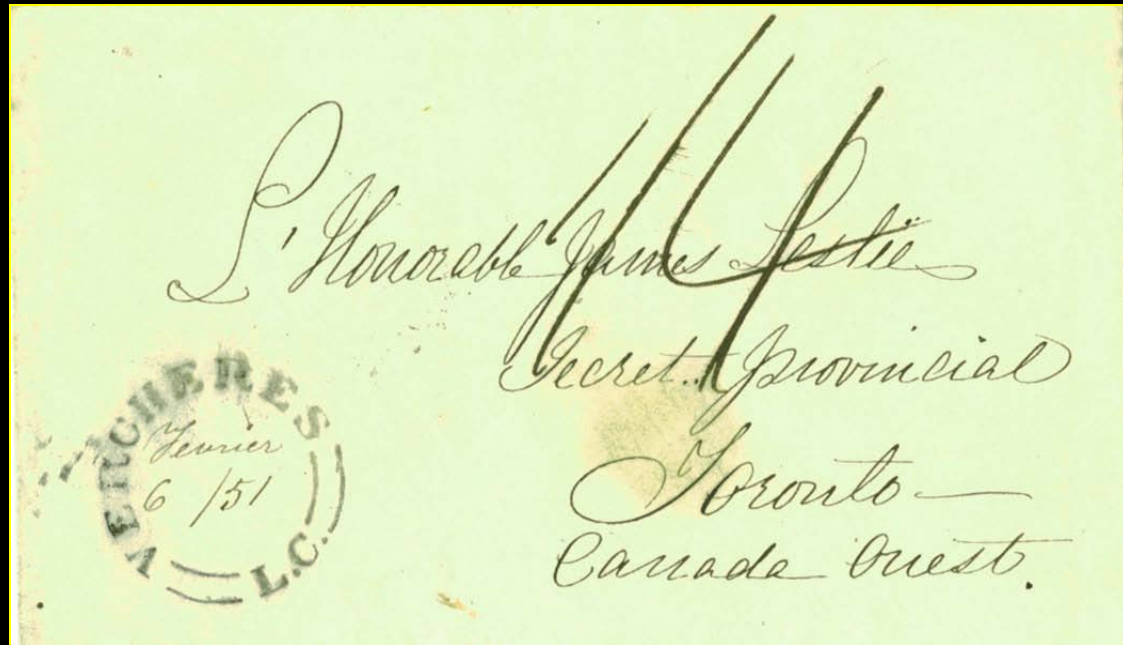 L'Honorable James Leslie
Secret. Provincial
Toronto
Canada Ouest.
VERCHERES
Fevrier
6 /51
L.C.